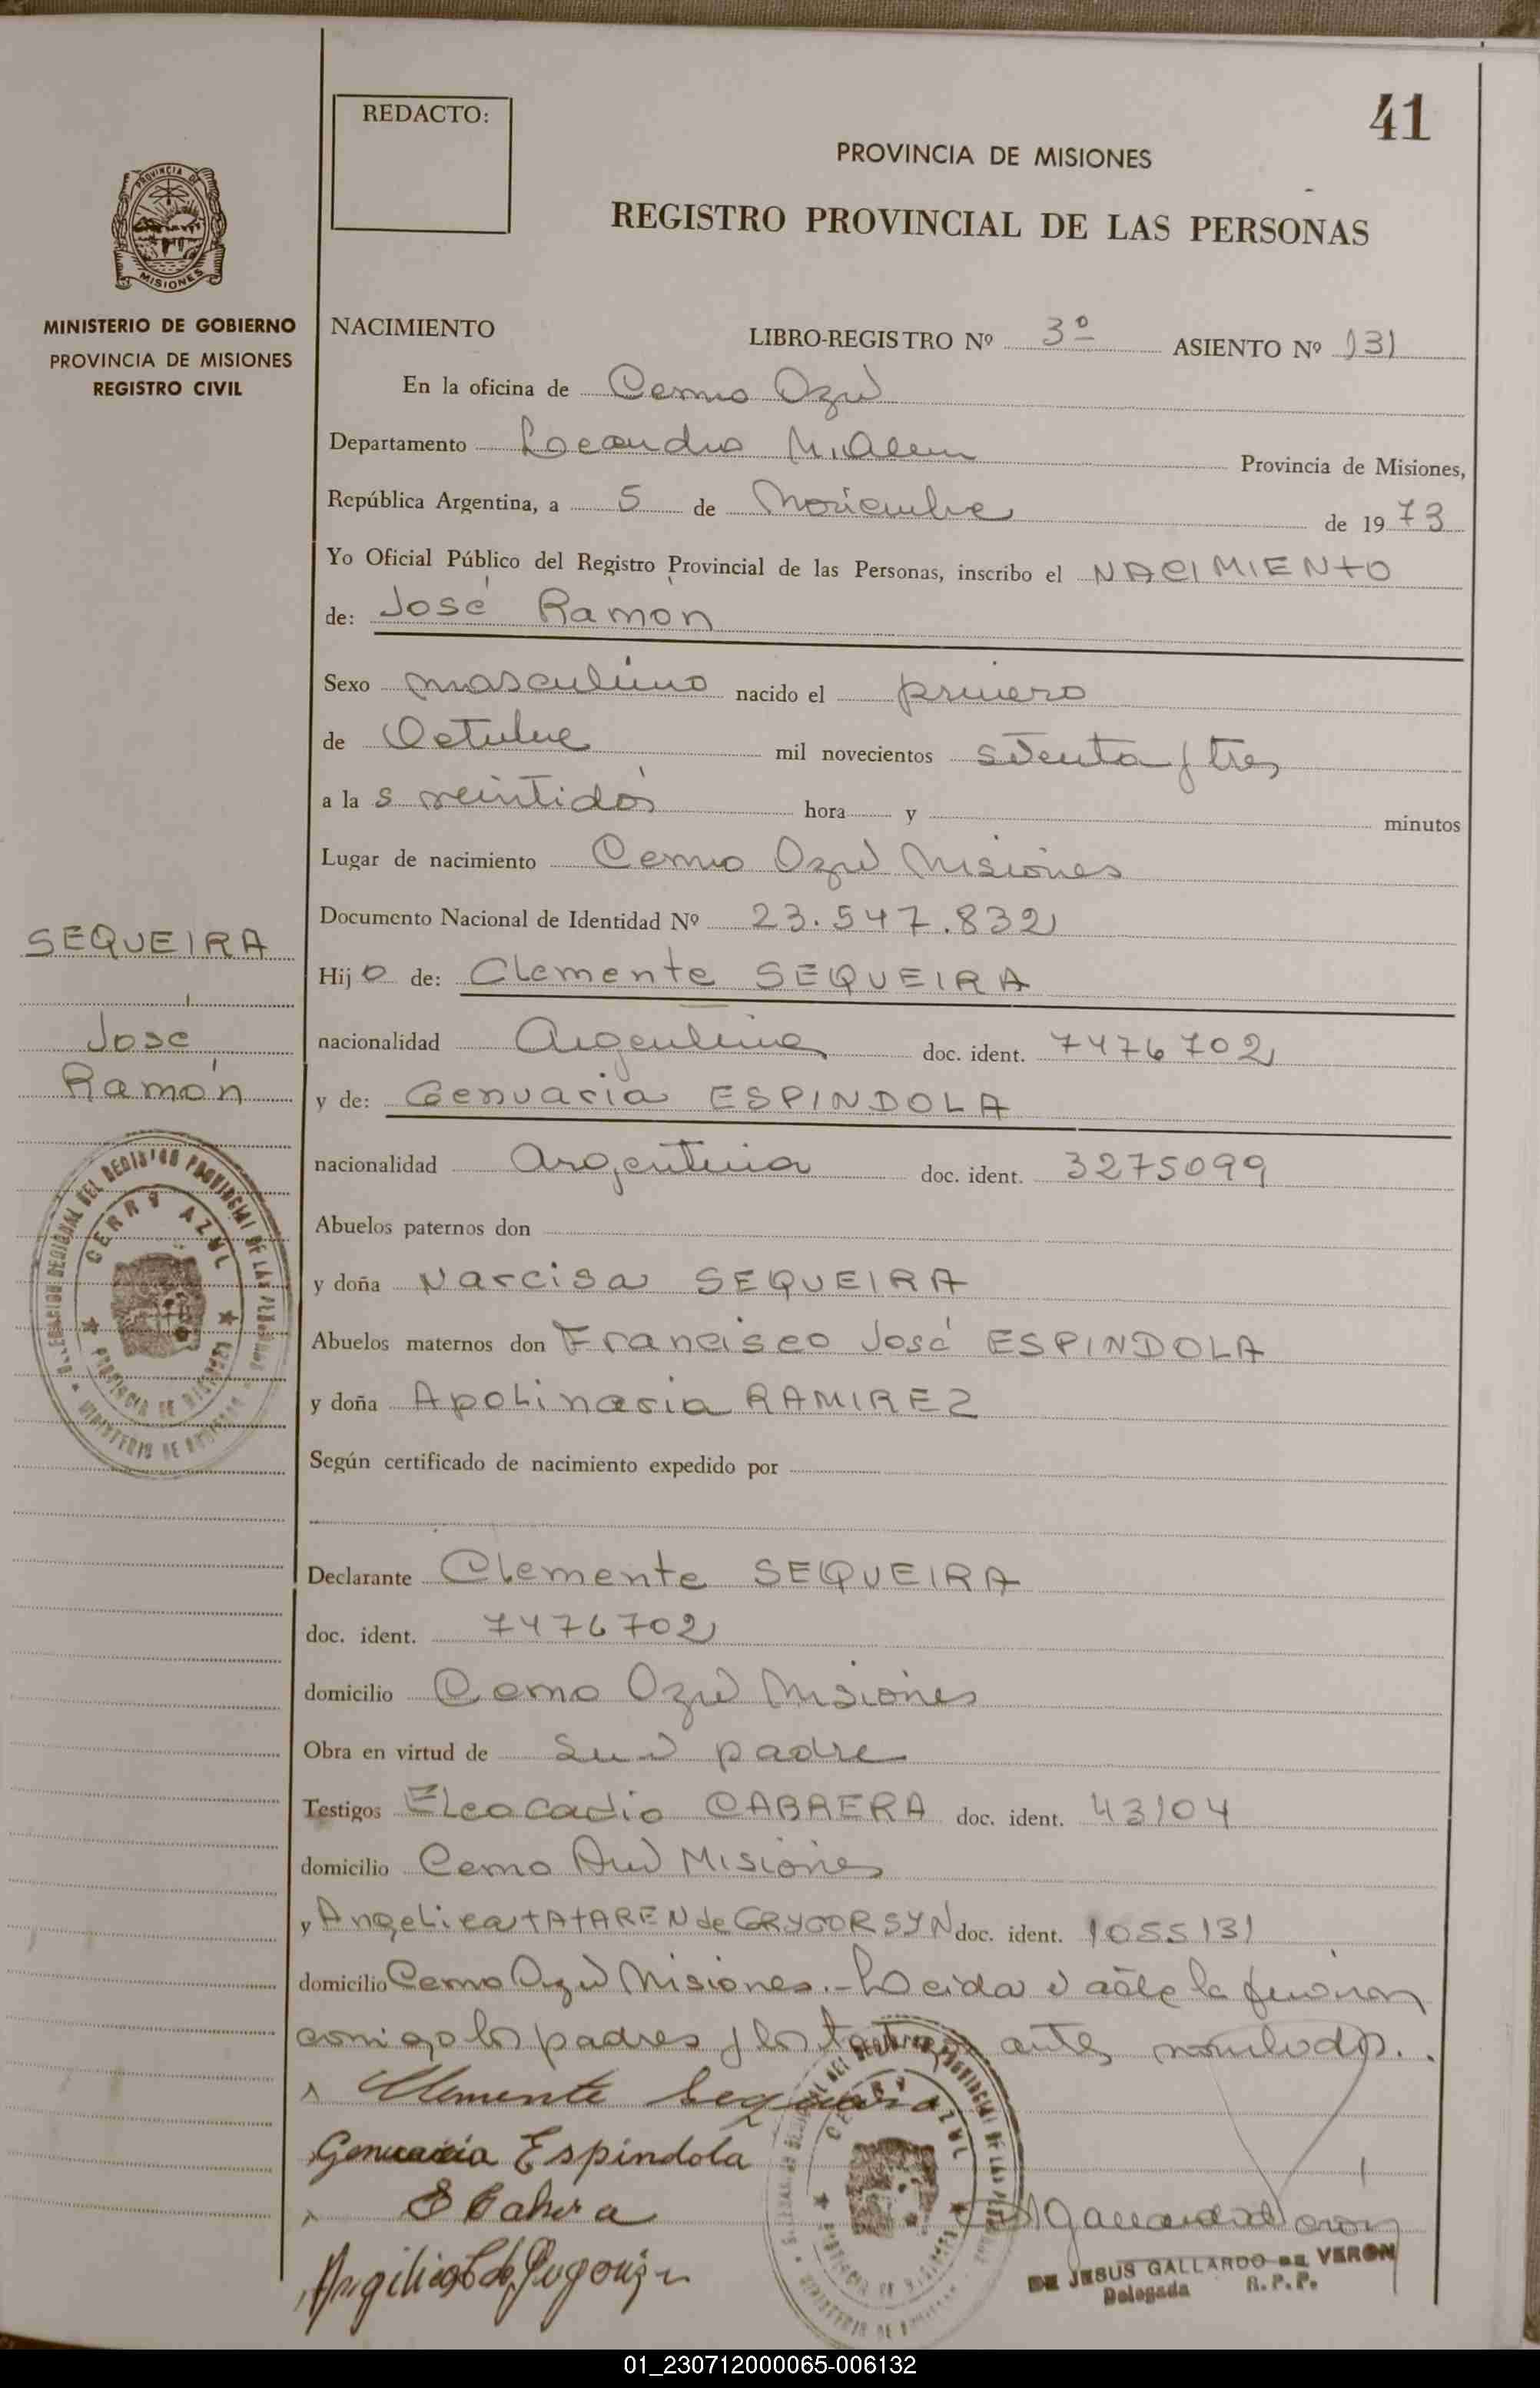 41
REDACTO:
PROVINCIA DE MISIONES
REGISTRO PROVINCIAL DE LAS PERSONAS
PROVINCIA DE
MISIONES
MINISTERIO DE GOBIERNO
PROVINCIA DE MISIONES
REGISTRO CIVIL
NACIMIENTO LIBRO-REGISTRO Nº 3º ASIENTO Nº 131
En la oficina de Cerro Azul
Departamento Leandro N. Alem Provincia de Misiones,
República Argentina, a 5 de Noviembre de 1973
Yo Oficial Público del Registro Provincial de las Personas, inscribo el NACIMIENTO
de: José Ramon
Sexo masculino nacido el primero
de Octubre mil novecientos setenta y tres
a la s veintidós hora y minutos
Lugar de nacimiento Cerro Azul Misiones
Documento Nacional de Identidad Nº 23.547.832
SEQUEIRA
José
Ramón
Hijo de: Clemente SEQUEIRA
nacionalidad Argentina doc. ident. 7476702
y de: Genuaria ESPINDOLA
nacionalidad argentina doc. ident. 3275099
Abuelos paternos don
y doña Narcisa SEQUEIRA
Abuelos maternos don Francisco José ESPINDOLA
y doña Apolinaria RAMIREZ
Según certificado de nacimiento expedido por
DELEGACION REGIONAL DEL REGISTRO PROVINCIAL DE LAS PERSONAS
CERRO AZUL
PROVINCIA DE MISIONES
MINISTERIO DE GOBIERNO
Declarante Clemente SEQUEIRA
doc. ident. 7476702
domicilio Cerro Azul Misiones
Obra en virtud de ser el padre
Testigos Eleocadio CABRERA doc. ident. 43104
domicilio Cerro Azul Misiones
y Angelica TATAREN de GRYGORSYN doc. ident. 1055131
domicilio Cerro Azul Misiones.- Leida el acta la firman
conmigo los padres y los testigos antes nombrados.
Clemente Sequeira
Genuaria Espindola
E Cabrera
CERRO AZUL
DE JESUS GALLARDO DE VERON
Delegada R. P. P.
01_230712000065-006132